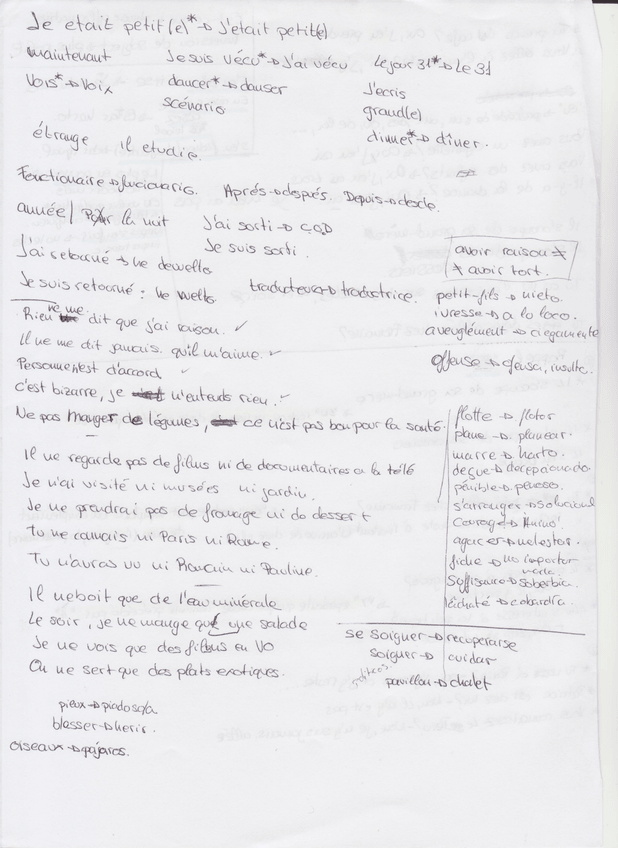 Je etait petit(e)* → J'etait petit(e)
maintenant Je suis vécu* → J'ai vécu Le jour 31* → Le 31
Vois* → Voix dancer* → danser J'ecris
scénario grand(e)
dinner* → dîner.
étrange Il etudie.
Fonctionaire → funcionario. Aprés → después. Depuis → desde.
année / Pour la nuit J'ai sorti → COD
Je suis sorti.
J'ai retourné → he devuelto
avoir raison ≠
≠ avoir tort.
Je suis retourné : he vuelto traducteur → traductrice.
petit-fils → nieto.
ivresse → a lo loco.
aveuglément → ciegamente
offense → ofensa, insulto.
Rien ne me dit que j'ai raison. ✓
Il ne me dit jamais qu'il m'aime. ✓
Personne n'est d'accord ✓
c'est bizarre, je n'entends rien. ✓
Ne pas manger de légumes, ce n'est pas bon pour la santé.
Il ne regarde pas de films ni de documentaires a la télé
Je n'ai visité ni musées ni jardin.
Je ne prendrai pas de fromage ni de dessert
Tu ne connais ni Paris ni Rome.
Tu n'auras vu ni Romain ni Pauline.
Il ne boit que de l'eau minérale
Le soir, je ne mange que une salade
Je ne vois que des films en VO
On ne sert que des plats exotiques.
flotte → flotar
plane → planear.
marre → harto.
deçue → decepcionado.
pénible → penoso.
s'arranger → solucionar
Courage → Ánimo!
agacer → molestar.
fiche → no importar
nada.
Soffisance → soberbia.
lâcheté → cobardía.
se soigner → recuperarse
soigner → cuidar
pavillon → chalet
pieux → piadoso/a
blesser → herir.
oiseaux → pájaros.